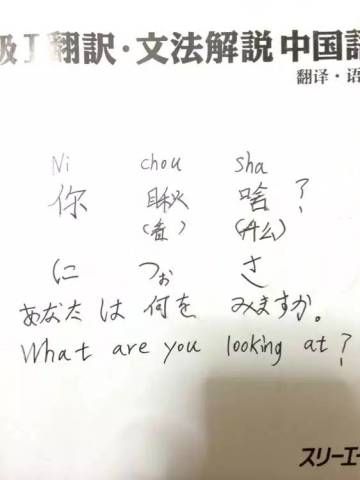 級I翻訳・文法解説 中国語
翻译・语
Ni chou sha
你 瞅 啥?
(看) (什么)
に つぉ さ
あなたは何をみますか。
What are you looking at?
スリーエー